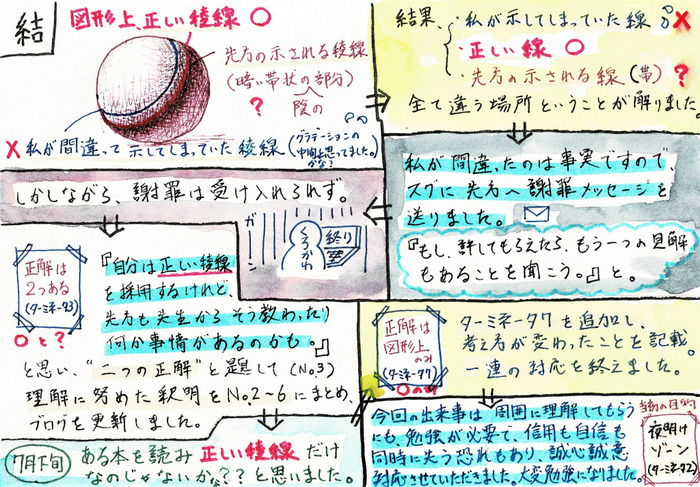 結
図形上、正しい稜線 ○
先方の示される稜線
(暗い帯状の部分)
陰の
?
× 私が間違って示してしまっていた稜線
(グラデーションの
中間と思ってました。
かな?)
結果、・私が示してしまっていた線 ×
・正しい線 ○
・先方の示される線(帯) ?
全て違う場所ということが解りました。
私が間違ったのは事実ですので、
スグに先方へ謝罪メッセージを
送りました。
『もし、許してもらえたら、もう一つの見解
もあることを聞こう。』と。
しかしながら、謝罪は受け入れられず。
ガーン
くろかわ
終り
正解は
2つある
(ターミネータ3)
○と?
『自分は正しい稜線
を採用するけれど、
先方も先生からそう教わったり
何か事情があるのかも。』
と思い、“二つの正解”と題して(No.3)
理解に努めた釈明をNo.2~6にまとめ、
ブログを更新しました。
7月下旬
ある本を読み 正しい稜線 だけ
なのじゃないかな??と思いました。
正解は
図形上
のみ
(ターミネータ7)
○のみ
ターミネータ7を追加し、
考え方が変わったことを記載。
一連の対応を終えました。
今回の出来事は周囲に理解してもらう
にも、勉強が必要で、信用も自信も
同時に失う恐れもあり、誠心誠意
対応させていただきました。大変勉強になりました。
当初の目的
夜明け
ゾーン
(ターミネータ2)